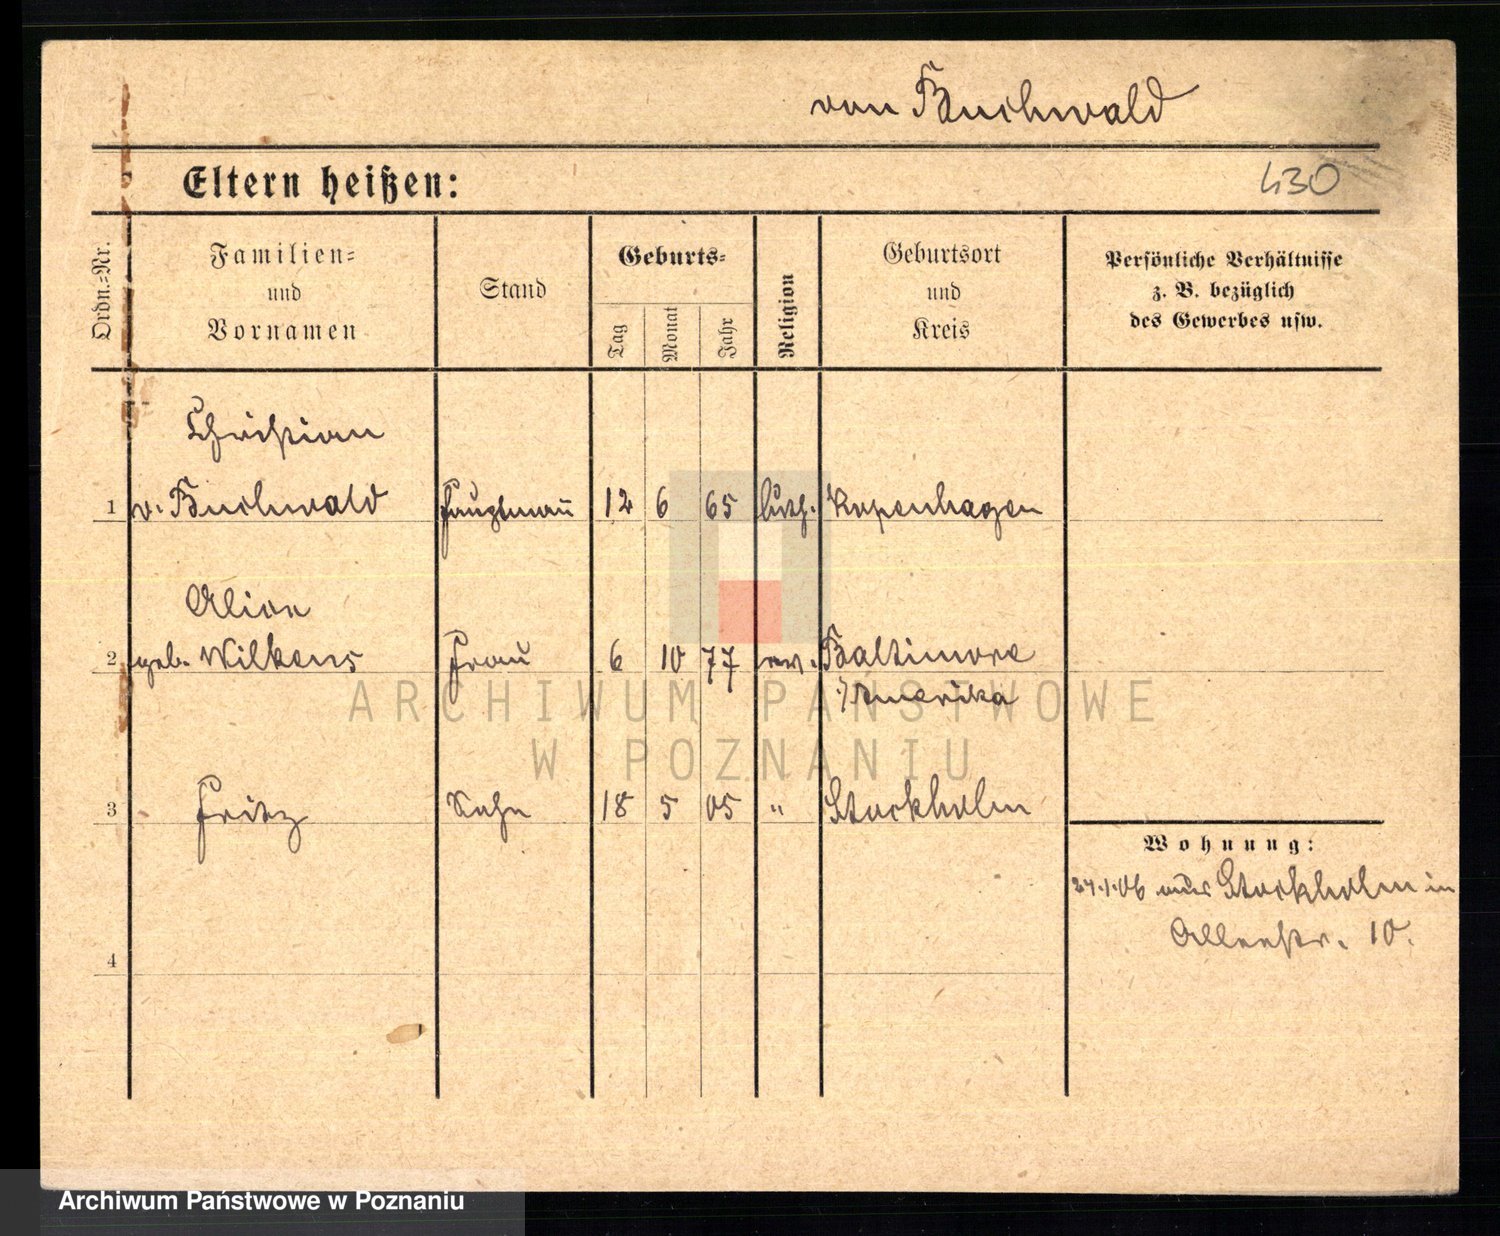 von Buchwald
Eltern heißen:
430
Ordn.=Nr.
Familien=
und
Vornamen
Stand
Geburts=
Tag
Monat
Jahr
Religion
Geburtsort
und
Kreis
Persönliche Verhältnisse
z. B. bezüglich
des Gewerbes usw.
Christian
1 v. Buchwald Hauptmañ 12 6 65 luth. Kopenhagen
Alice
2 geb. Wilkens Frau 6 10 77 ev. Baltimore
Amerika
3 Fritz Sohn 18 5 05 " Stockholm
Wohnung:
24.1.06 aus Stockholm in
Alleestr. 10.
4
ARCHIWUM PAŃSTWOWE
W POZNANIU
Archiwum Państwowe w Poznaniu